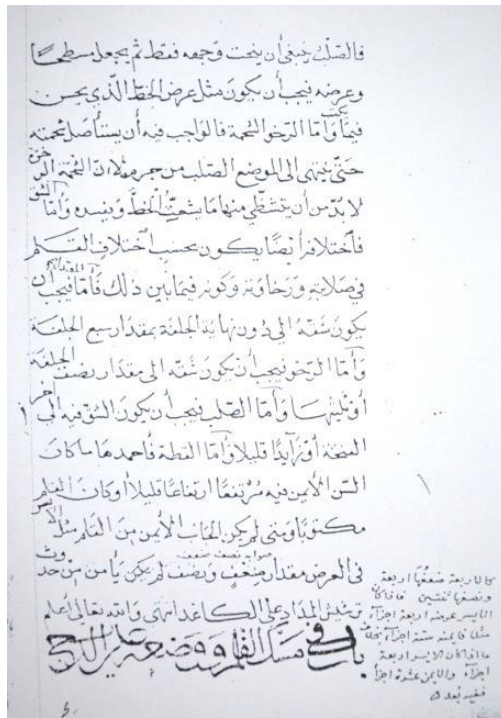 فالصلب ينبغي أن ينحت وجهه فقط ثم يجعل مسطحا
وعرضه فيجب أن يكون مثل عرض الخط الذي يحسن
فيما يكتب وأما الرخو الشحمة فالواجب فيه أن يستأصل شحمته
حتى ينتهى الى الموضع الصلب من جرمه لان الشحمة الرخوة
لا بد من أن يتشظى منها ما يشعث الخط ويفسده وأما الشق
فاختلافه أيضا يكون بحسب اختلاف القلم
في صلابته ورخاوته وكونه فيما بين ذلك فأما المعتدل فيجب أن
يكون شقه الى دون نهاية الجلفة بمقدار ربع الجلفة
وأما الرخو فيجب أن يكون شقه الى مقدار نصف الجلفة
أو ثلثيها وأما الصلب فيجب أن يكون الشق فيه الى آخر
الفتحة أو زايدا قليلا وأما القطة فأحمدها ما كان
السن الأيمن فيه مرتفعا ارتفاعا قليلا إذا كان القلم
مكتوبا ومتى لم يكن الجانب الأيمن من القلم مثل الأيسر
في العرض مقدار ضعف ونصف لم يكن يأمن من حدوث
صوابه نصف ضعف
ترشيش المداد على الكاغد انتهى والله تعالى أعلم
باب في مسك القلم ووضعه على الدرج
كالاربعة ضعفها اربعة
ونصفها فاذا كان
الايسر عرضه اربعة اجزآء
مثلا فايمنه ستة اجزآء بخلاف
ما اذا كان الايسر اربعة
اجزآء والايمن عشرة اجزآء